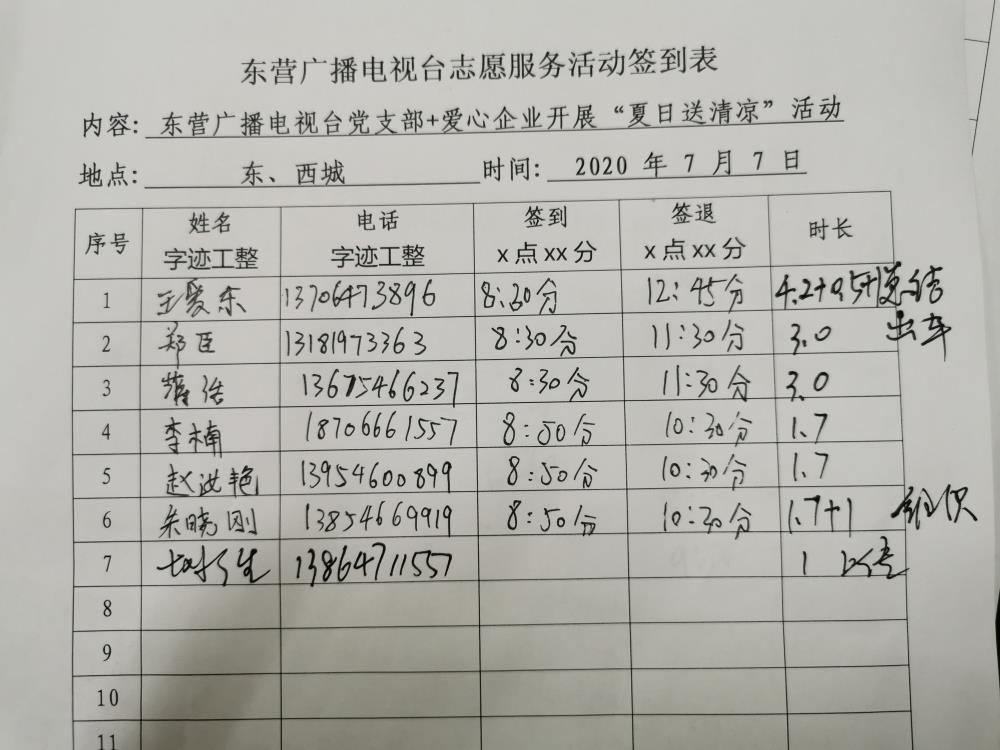 东营广播电视台志愿服务活动签到表
内容: 东营广播电视台党支部+爱心企业开展“夏日送清凉”活动
地点: 东、西城 时间: 2020 年 7 月 7 日
序号 姓名 字迹工整 电话 字迹工整 签到 x点xx分 签退 x点xx分 时长
1 王爱东 13706473896 8:30分 12:45分 4.2+0.5+1总结
2 郑臣 13181973363 8:30分 11:30分 3.0 出车
3 13675466237 8:30分 11:30分 3.0
4 李楠 18706661557 8:50分 10:30分 1.7
5 赵洪艳 13954600899 8:50分 10:30分 1.7
6 朱晓刚 13854669919 8:50分 10:30分 1.7+1 组织
7 13864711557 1
8
9
10
11